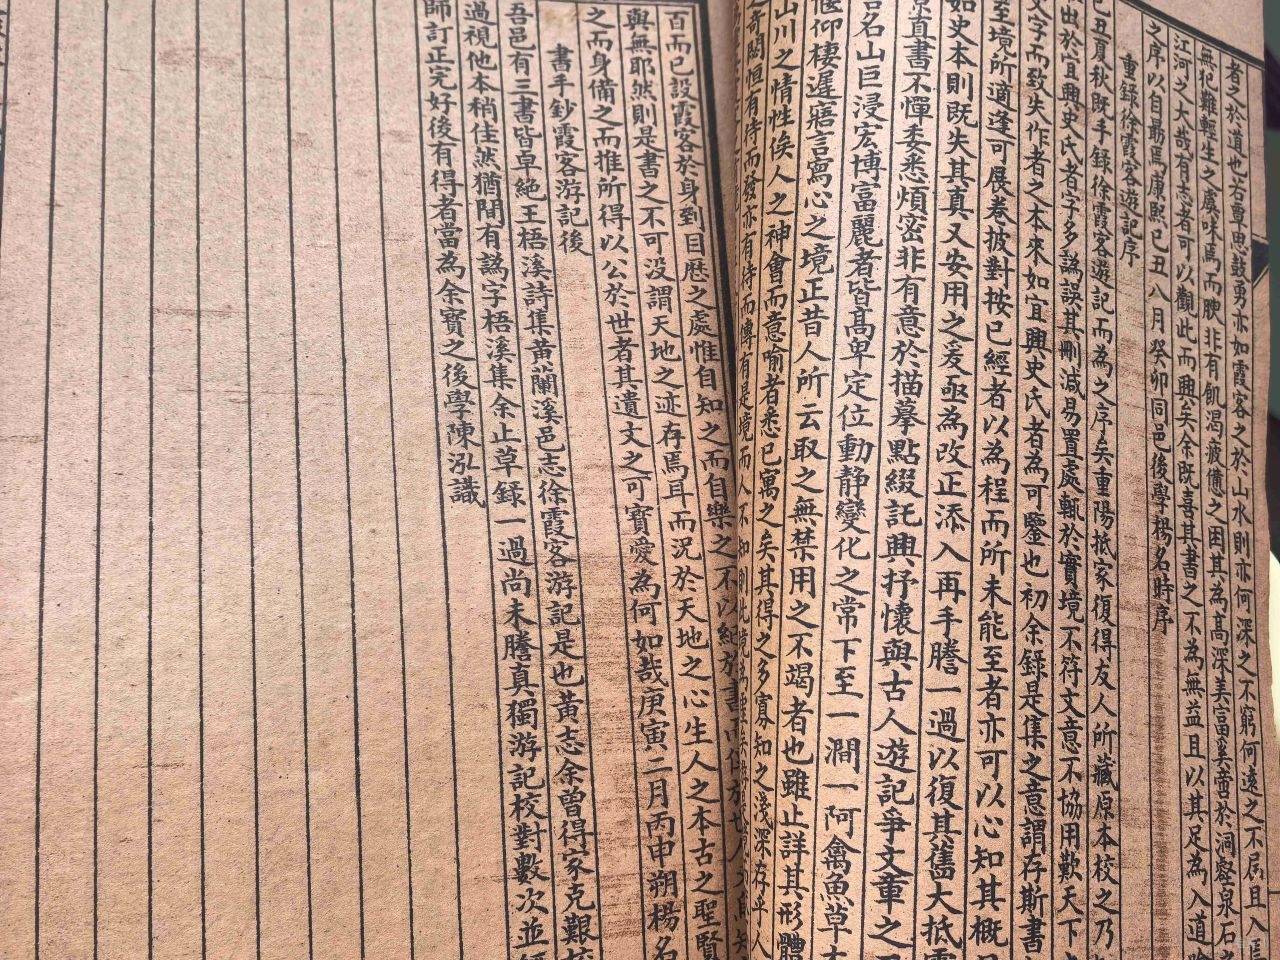 者之於道也若尊思鼓勇亦如霞客之於山水則亦何深之不窮何遠之不屆且入焉
無犯難輕生之虞味焉而腴非有飢渴疲憊之困其為高深美富奚啻於洞壑泉石之
江河之大哉有志者可以觀此而興矣余既喜其書之不為無益且以其足為入道
之序以自勗焉康熙己丑八月癸卯同邑後學楊名時序
重錄徐霞客遊記序
己丑夏秋既手錄徐霞客遊記而為之序矣重陽抵家復得友人所藏原本校之乃
出於宜興史氏者字多譌誤其刪減易置處輒於實境不符文意不協用歎天下
文字而致失作者之本來如宜興史氏者為可鑒也初余錄是集之意謂存斯書
至境所適逢可展卷披對按已經者以為程而所未能至者亦可以心知其概
如史本則既失其真又安用之爰亟為改正添入再手謄一過以復其舊大抵霞
直書不憚委悉煩密非有意於描摹點綴託興抒懷與古人遊記爭文章之
名山巨浸宏博富麗者皆高卑定位動靜變化之常下至一澗一阿禽魚草
偃仰棲遲寤言寫心之境正昔人所云取之無禁用之不竭者也雖止詳其形體
山川之情性俟人之神會而意喻者悉已寓之矣其得之多寡知之淺深存乎人
奇閟恒有待而發亦有待而傳有是境而人不知則此境為虛矣
百而已設霞客於身到目歷之處惟自知之而自樂之不以
與無耶然則是書之不可沒謂天地之迹存焉耳而況於天地之心生人之本古之聖賢
之而身備之而推所得以公於世者其遺文之可寶愛為何如哉庚寅二月丙申朔楊名
書手鈔霞客游記後
吾邑有三書皆卓絶王梧溪詩集黃蘭溪邑志徐霞客游記是也黃志余曾得家克艱校
過視他本稍佳然猶間有譌字梧溪集余止草錄一過尚未謄真獨游記校對數次並經
師訂正完好後有得者當為余寶之後學陳泓識